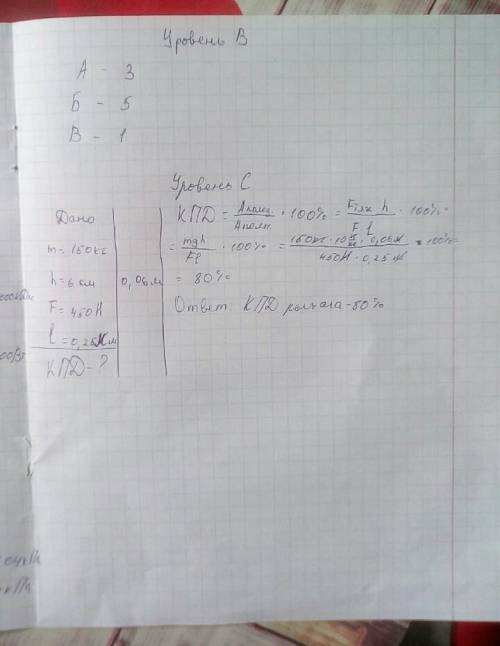 Уровень В
А - 3
Б - 5
В - 1
Уровень С
Дано
m = 150кг
h = 6 см 0,06м
F = 450Н
l = 0,25м
КПД - ?
КПД = Aполез/Aполн · 100% = Fтяж h/F l · 100% =
= mgh/Fl · 100% = 150кг · 10 Н/кг · 0,06м/450Н · 0,25м · 100% =
= 80%
Ответ: КПД рычага - 80%